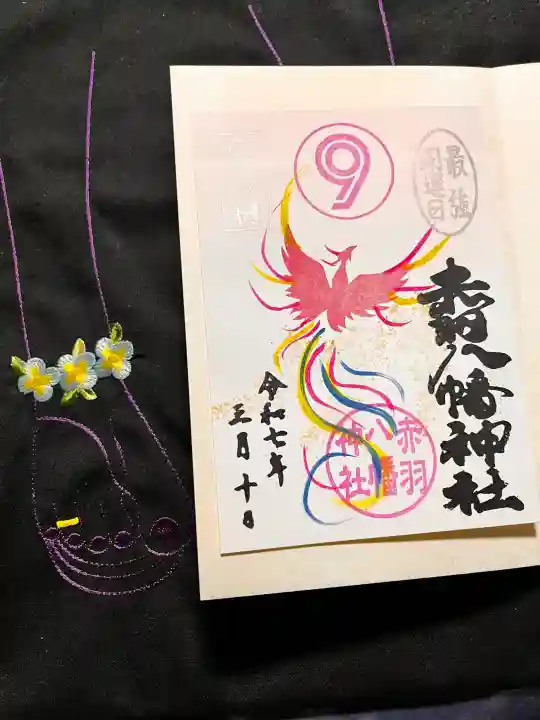 ⑨
最強
開運日
赤羽八幡神社
赤羽
八幡
神社
令和七年
三月十日